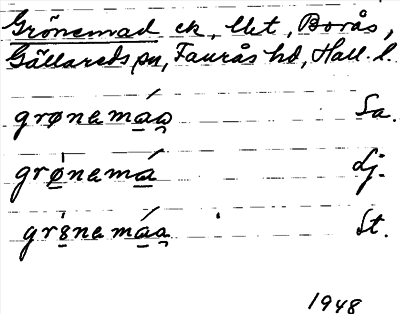 Grönemad ek, llet, Borås,
Gällareds sn, Faurås hd, Hall. l.
grønemáa Sa.
grø̀nemá Lj.
gr8̀nemáa St.
1948